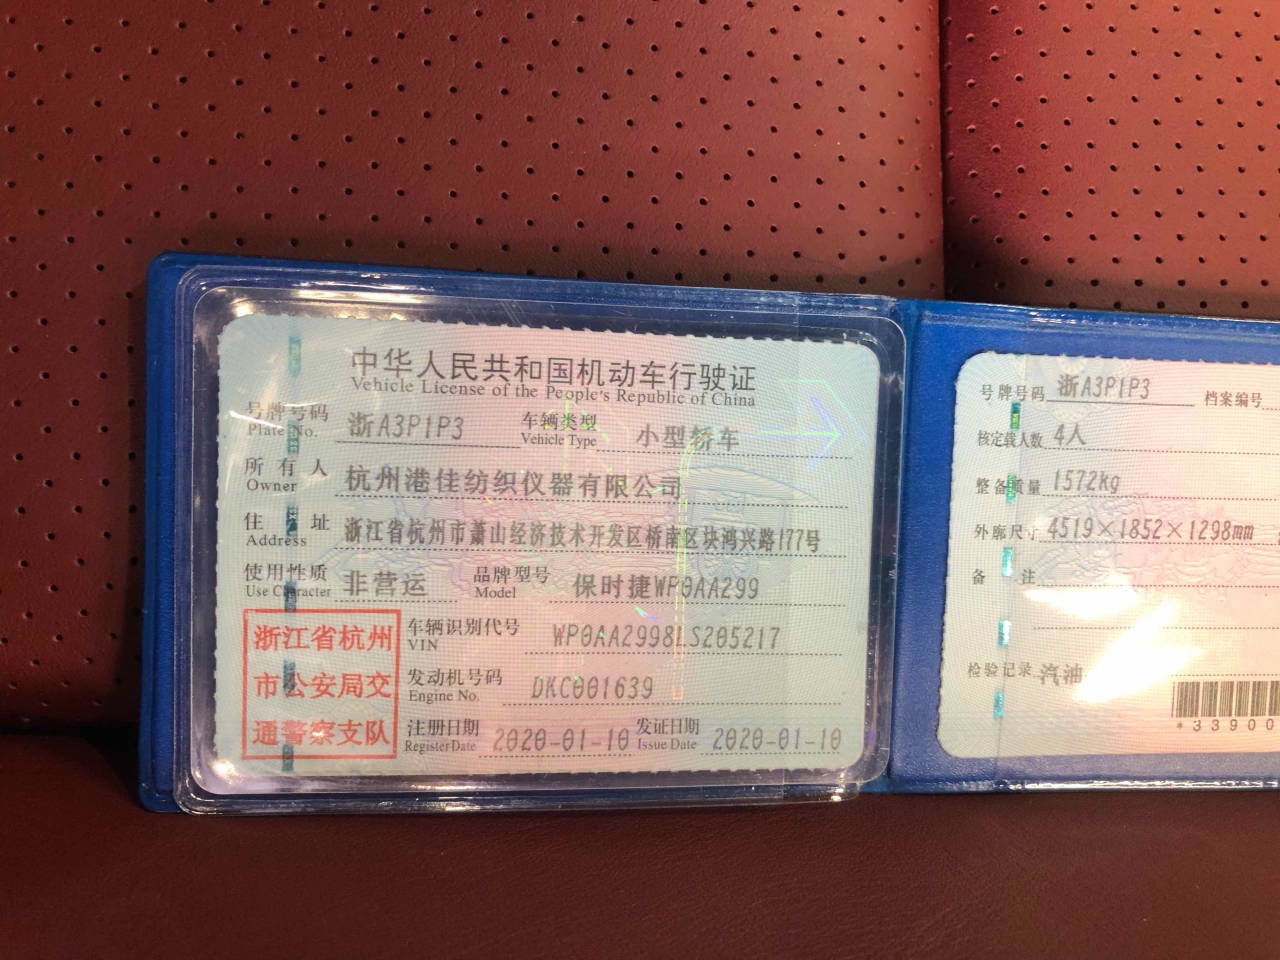 中华人民共和国机动车行驶证
Vehicle License of the People's Republic of China
号牌号码 浙A3P1P3 车辆类型 小型轿车
Plate No. Vehicle Type
所有人 杭州港佳纺织仪器有限公司
Owner
住址 浙江省杭州市萧山经济技术开发区桥南区块鸿兴路177号
Address
使用性质 非营运 品牌型号 保时捷WP0AA299
Use Character Model
浙江省杭州
市公安局交
通警察支队
车辆识别代号 WP0AA2998LS205217
VIN
发动机号码 DKC001639
Engine No.
注册日期 2020-01-10 发证日期 2020-01-10
Register Date Issue Date
号牌号码 浙A3P1P3 档案编号
核定载人数 4人
整备质量 1572kg
外廓尺寸 4519×1852×1298mm
备注
检验记录 汽油
*33900